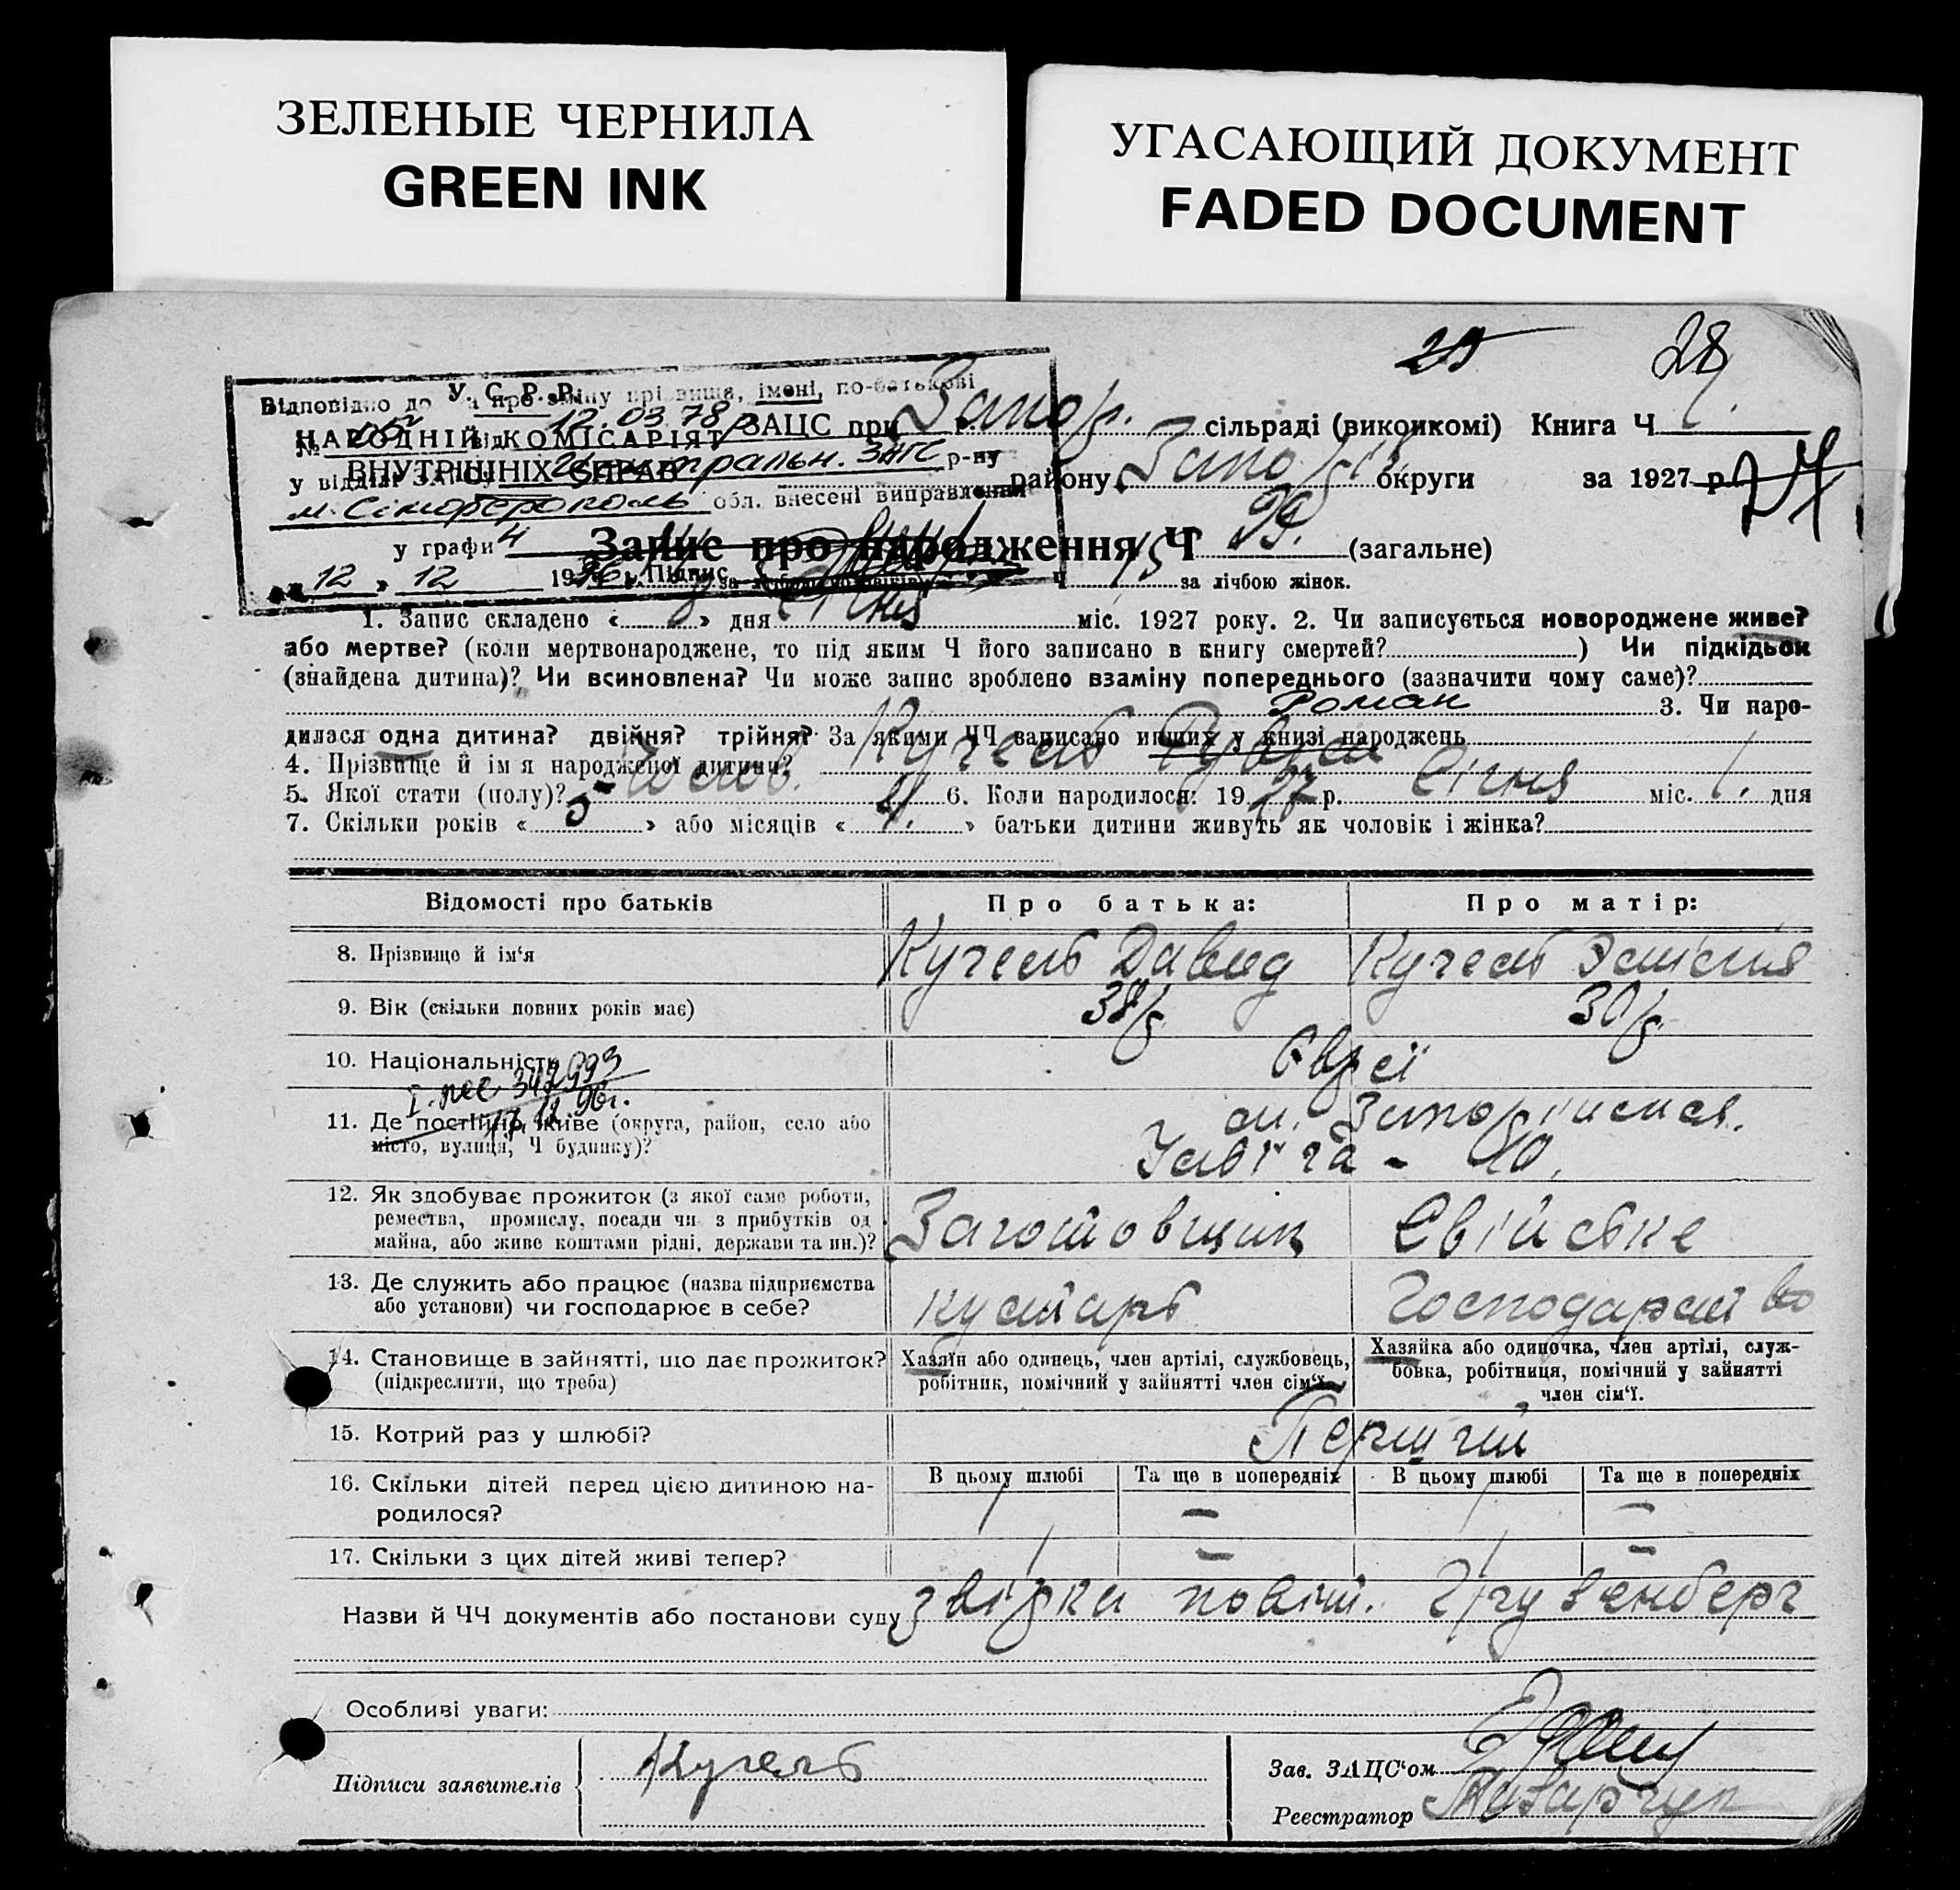 ЗЕЛЕНЫЕ ЧЕРНИЛА
GREEN INK
УГАСАЮЩИЙ ДОКУМЕНТ
FADED DOCUMENT
28
У. С. Р. Р.
НАРОДНІЙ КОМІСАРІЯТ
ВНУТРІШНІХ СПРАВ
Відповідно до про зміну прізвища, імені, по-батькові
№ від 12.03.78 р
у відділі ЗАГСу Центральн. ЗАГС р-ну
м. Сімферополь обл. внесені виправлення
у графи 4
" 12 " 12 1996 р. Підпис
ЗАЦС при Запор. сільраді (виконкомі) Книга Ч
району Запоріз. округи за 1927 р.
Запис про народження Ч 29. (загальне)
Ч 15 за лічбою жінок.
1. Запис складено « » дня Січня міс. 1927 року. 2. Чи записується новороджене живе?
або мертве? (коли мертвонароджене, то під яким Ч його записано в книгу смертей? ) Чи підкідьок
(знайдена дитина)? Чи всиновлена? Чи може запис зроблено взаміну попереднього (зазначити чому саме)?
Роман 3. Чи наро-
дилася одна дитина? двійня? трійня? За якими ЧЧ записано инших у книзі народжень
4. Прізвище й ім'я народженої дитини? Кугель
5. Якої стати (полу)? Чолов. 6. Коли народилося: 1927 р. Січня міс. 1. дня
7. Скільки років « 5 » або місяців « » батьки дитини живуть як чоловік і жінка?
Відомості про батьків
Про батька:
Про матір:
8. Прізвище й ім'я Кугель Давид Кугель
9. Вік (скільки повних років має) 38 р. 30 р.
10. Національність Євреї
342993
17.12.96г.
11. Де постійно живе (округа, район, село або
місто, вулиця, Ч будинку)?
м. Запоріжжя.
10.
12. Як здобуває прожиток (з якої саме роботи,
ремества, промислу, посади чи з прибутків од
майна, або живе коштами рідні, держави та ин.)?
Заготовщик Свійське
13. Де служить або працює (назва підприємства
або установи) чи господарює в себе?
кустарь Господарство
14. Становище в зайнятті, що дає прожиток?
(підкреслити, що треба)
Хазяїн або одинець, член артілі, службовець,
робітник, помічний у зайнятті член сім'ї.
Хазяйка або одиночка, член артілі, служ-
бовка, робітниця, помічний у зайнятті
член сім'ї.
15. Котрий раз у шлюбі? Перший
16. Скільки дітей перед цією дитиною на-
родилося?
В цьому шлюбі Та ще в попередніх В цьому шлюбі Та ще в попередніх
1 — 1 —
17. Скільки з цих дітей живі тепер? 1 — 1 —
Назви й ЧЧ документів або постанови суду повит.
Особливі уваги:
Підписи заявителів Кугель
Зав. ЗАЦС'ом
Реєстратор